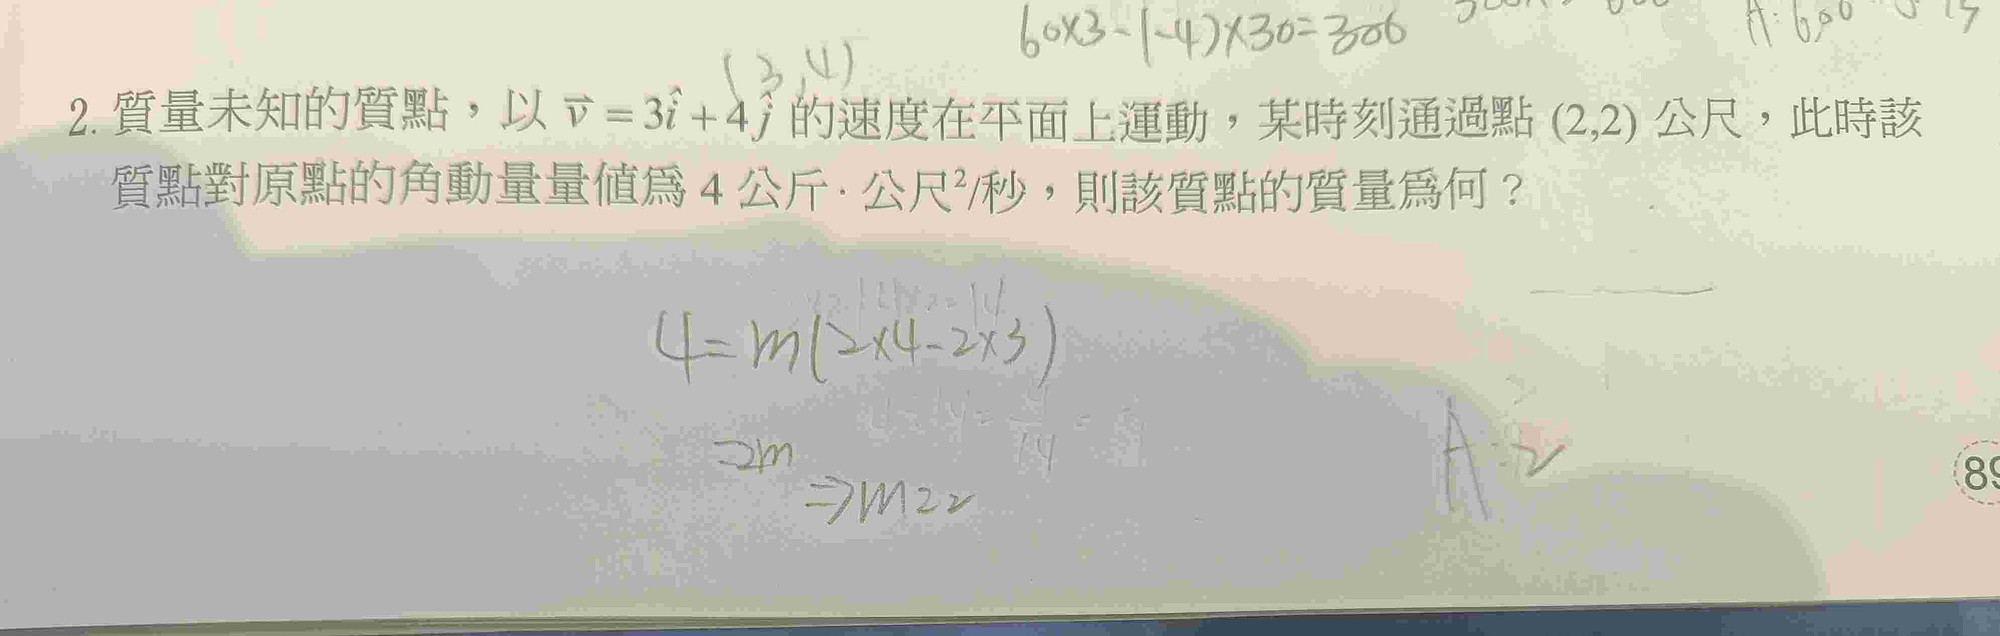 60×3-(-4)×30=300
(3,4)
2. 質量未知的質點，以 v⃗ = 3î + 4ĵ 的速度在平面上運動，某時刻通過點 (2,2) 公尺，此時該
質點對原點的角動量量值為 4 公斤 · 公尺²/秒，則該質點的質量為何？
4=m(2×4-2×3)
=2m
⇒m=2
A:2
89